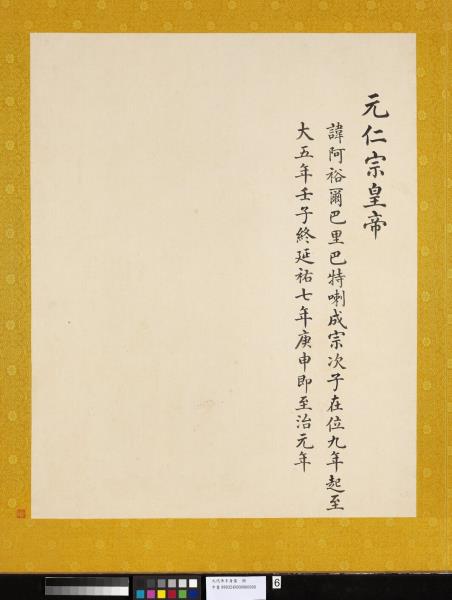 元仁宗皇帝
諱阿裕爾巴里巴特喇成宗次子在位九年起至
大五年壬子終延祐七年庚申即至治元年
6